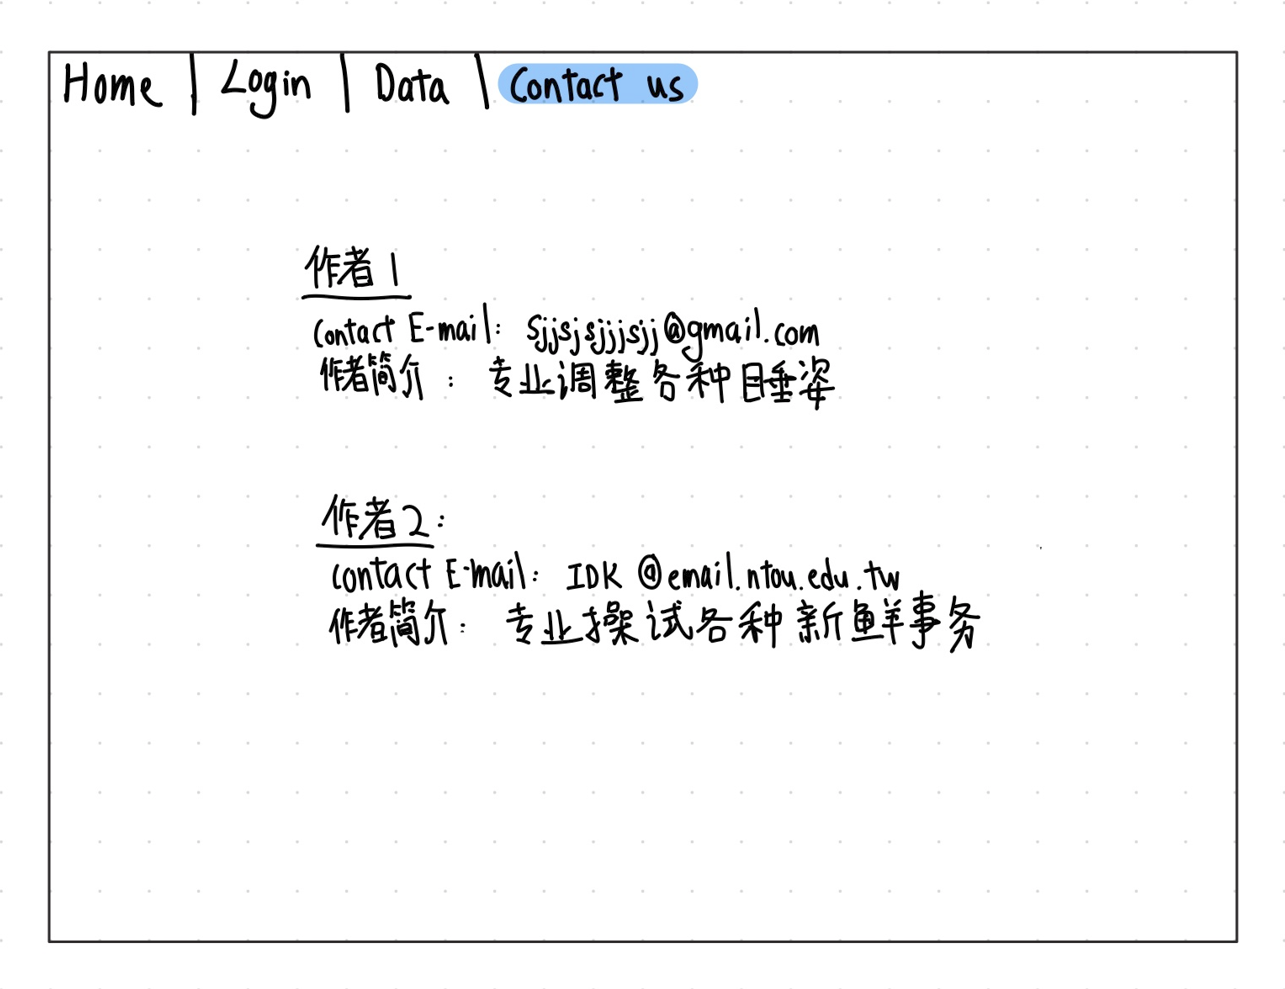 Home | Login | Data | Contact us
作者1
Contact E-mail: sjjsjsjjjsjj@gmail.com
作者简介: 专业调整各种睡姿
作者2:
contact E-mail: IDK@email.ntou.edu.tw
作者简介: 专业操试各种新鲜事务